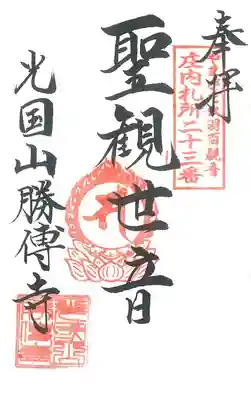 奉拝
羽百観音
庄内札所二十三番
聖観世音
光国山勝傳寺